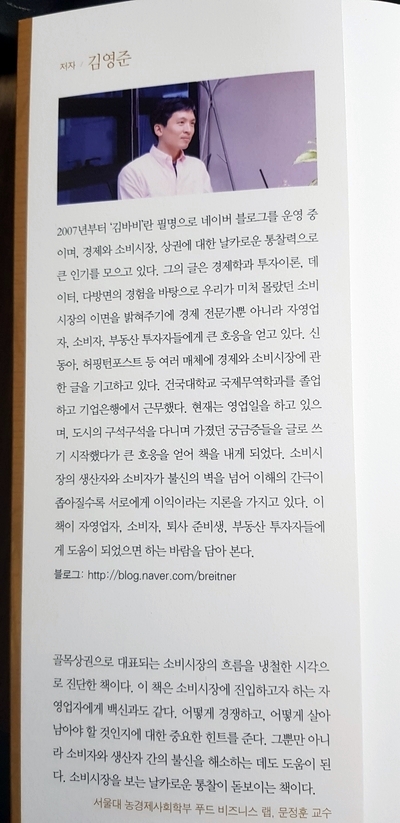 저자 김영준
2007년부터 '김바비'란 필명으로 네이버 블로그를 운영 중
이며, 경제와 소비시장, 상권에 대한 날카로운 통찰력으로
큰 인기를 모으고 있다. 그의 글은 경제학과 투자이론, 데
이터, 다방면의 경험을 바탕으로 우리가 미처 몰랐던 소비
시장의 이면을 밝혀주기에 경제 전문가뿐 아니라 자영업
자, 소비자, 부동산 투자자들에게 큰 호응을 얻고 있다. 신
동아, 허핑턴포스트 등 여러 매체에 경제와 소비시장에 관
한 글을 기고하고 있다. 건국대학교 국제무역학과를 졸업
하고 기업은행에서 근무했다. 현재는 영업일을 하고 있으
며, 도시의 구석구석을 다니며 가졌던 궁금증들을 글로 쓰
기 시작했다가 큰 호응을 얻어 책을 내게 되었다. 소비시
장의 생산자와 소비자가 불신의 벽을 넘어 이해의 간극이
좁아질수록 서로에게 이익이라는 지론을 가지고 있다. 이
책이 자영업자, 소비자, 퇴사 준비생, 부동산 투자자들에
게 도움이 되었으면 하는 바람을 담아 본다.
블로그: http://blog.naver.com/breitner
골목상권으로 대표되는 소비시장의 흐름을 냉철한 시각으
로 진단한 책이다. 이 책은 소비시장에 진입하고자 하는 자
영업자에게 백신과도 같다. 어떻게 경쟁하고, 어떻게 살아
남아야 할 것인지에 대한 중요한 힌트를 준다. 그뿐만 아니
라 소비자와 생산자 간의 불신을 해소하는 데도 도움이 된
다. 소비시장을 보는 날카로운 통찰이 돋보이는 책이다.
서울대 농경제사회학부 푸드 비즈니스 랩, 문정훈 교수